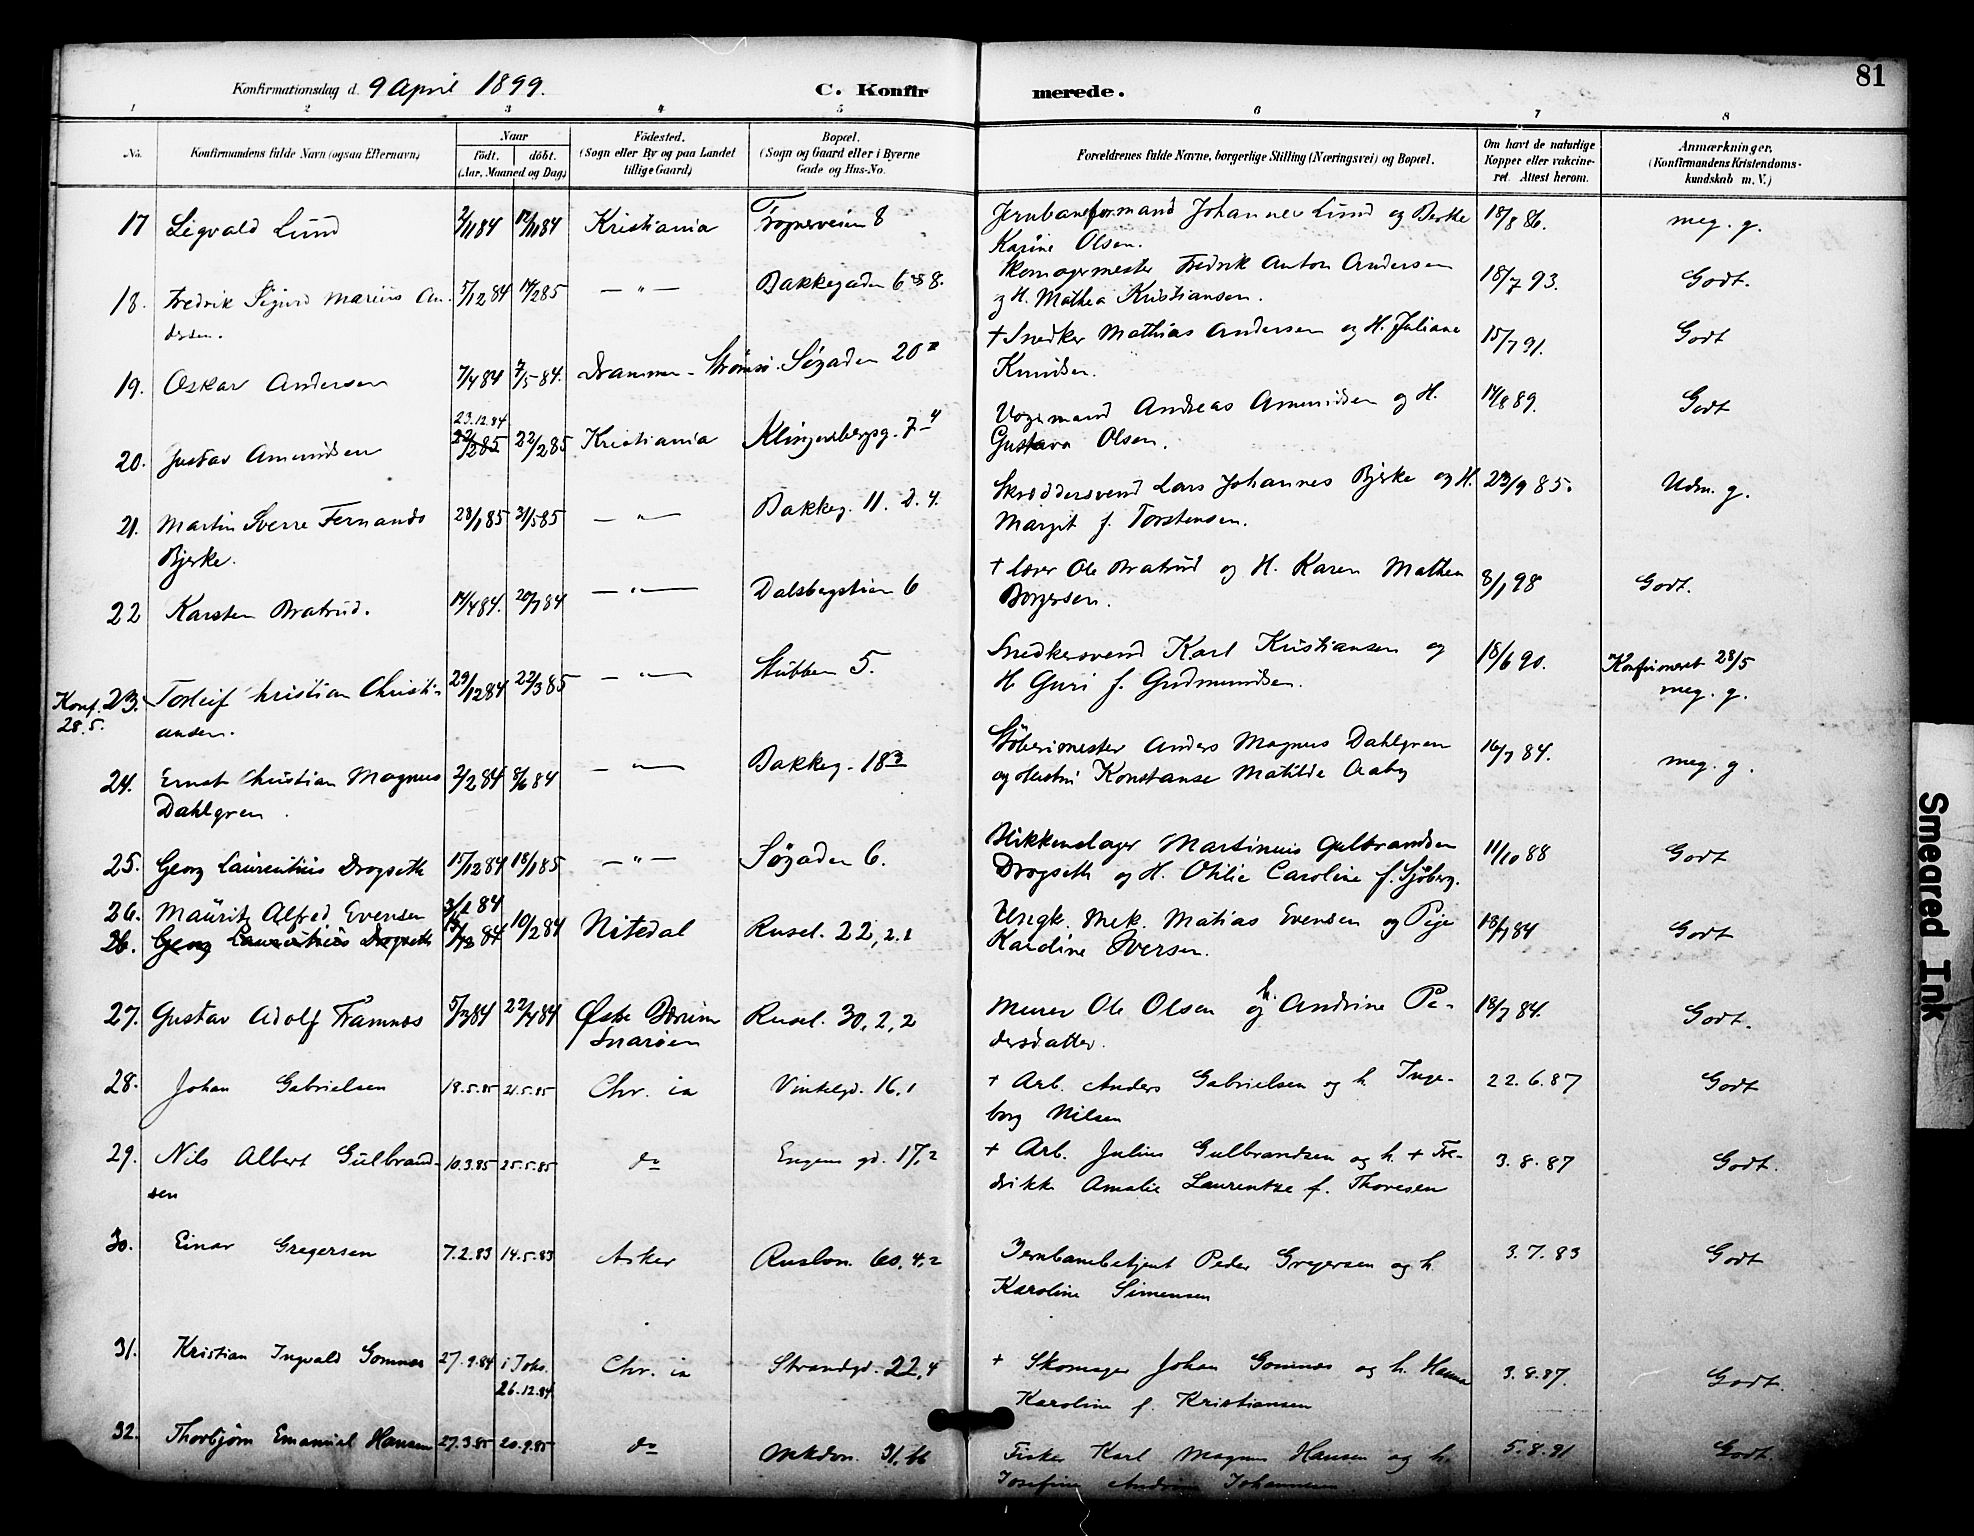 81
Konfirmationsdag d. 9 April 1899.
C. Konfir
merede.
1 2 3 4 5 6 7 8
No.
Konfirmandens fulde Navn (ogsaa Efternavn)
Naar
Födt. döbt.
(Aar, Maaned og Dag)
Födested.
(Sogn eller By og paa Landet
tillige Gaard)
Bopæl.
(Sogn og Gaard eller i Byerne
Gade og Hus-No.
Forældrenes fulde Navne, borgerlige Stilling (Næringsvei) og Bopæl.
Om havt de naturlige
Kopper eller vakcine-
ret. Attest herom.
Anmærkninger,
(Konfirmandens Kristendoms-
kundskab m. V.)
17 Sigvald Lund 2/11 84 12/11 84 Kristiania Frognerveien 8 Jernbaneformand Johannes Lund og Berthe 18/8 86. meg. g.
Karine Olsen.
18. Fredrik Sigurd Marius An- 5/12 84 17/2 85 — " — Bakkegaden 6 8. Skomagermester Fredrik Anton Andersen 18/7 93. Godt.
dersen. og H. Mathea Kristiansen.
19. Oskar Andersen 7/4 84 7/5 84. Drammen - Strømsø. Søgaden 20 + Snedker Mathias Andersen og H. Juliane 15/7 91. Godt
Knudsen.
23.12.84
20. Gustav Amundsen 22/2 85 22/2 85 Kristiania Klingenbergg. 7 4 Vognmand Andreas Amundsen og H. 14/8 89. Godt
Gustava Olsen.
21. Martin Sverre Fernando 28/1 85 31/5 85 — " — Bakkeg. 11. 2. 4. Skræddersvend Lars Johannes Bjerke og H. 23/9 85. Udm. g.
Bjerke. Margit f. Torstensen.
22 Karsten Bratrud. 14/4 84. 20/7 84 — " — Dalsbergstien 6 + Lærer Ole Bratrud og H. Karen Mathea 8/1 98 Godt.
Borgersen.
Konf. 23. Torleif Christian Christi- 29/12 84 22/3 85 — " — Stubben 5. Snedkersvend Karl Kristiansen og 18/6 90. Konfirmeret 28/5
28.5. ansen. H. Guri f. Gudmundsen. meg. g.
24. Ernst Christian Magnus 2/2 84 8/6 84 — " — Bakkeg. 18 3 Støberimester Anders Magnus Dahlgren 16/7 84. meg. g.
Dahlgren. og Hustru Konstanse Matilde Aaby
25. Georg Laurentius Drogseth 15/12 84 18/1 85 — " — Søgaden 6. Blikkenslager Martinius Gulbrandsen 11/10 88 Godt
Drogseth og H. Otilie Caroline f. Sjøberg.
26. Mauritz Alfred Evensen 3/1 84
26. Georg Laurentius Drogseth 84 10/2 84 Nitedal Rusel. 22, 2.1 Ungk. Mek. Matias Evensen og Pige 18/7 84 Godt
Karoline Iversen.
27. Gustav Adolf Framnæs 5/3 84 22/4 84 Østre Bærum Rusel. 30, 2, 2 Murer Ole Olsen og h. Andrine Pe- 18/7 84. Godt.
Snarøen dersdatter.
28. Johan Gabrielsen 18.5.85 21.5.85 Chr. ia Vinkelgd. 16,1 + Arb. Anders Gabrielsen og h. Inge- 22.6.87 Godt
borg Nilsen
29. Nils Albert Gulbrand- 10.3.85 25.5.85 do Engens gd. 17,2 + Arb. Julius Gulbrandsen og h. + Fre- 3.8.87 Godt.
sen drikke Amalie Laurentze f. Thoresen
30. Einar Gregersen 7.2.83 14.5.83 Asker Rusløn. 60, 4,2 Jernbanebetjent Peder Gregersen og h. 3.7.83 Godt
Karoline Simensen
31. Kristian Ingvald Gomnæs 27.9.84 i Joh. Chr. ia Strandgd. 22,4 + Skomager Johan Gomnæs og h. Hanna 3.8.87. Godt.
26.12.84 Karoline f. Kristiansen
32. Thorbjörn Emanuel Hansen 27.3.85 20.9.85 do 31, Fisker Karl Magnus Hansen og h. 5.8.91 Godt.
Josefine Andrine Johannesen
Smeared Ink